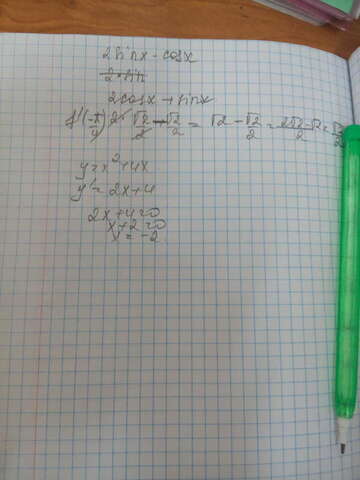 2sinx - cosx
2cosx + sinx
f'(-π/4) 2·√2/2 - √2/2 = √2 - √2/2 = 2√2-√2/2 = √2/2
y = x² + 4x
y' = 2x + 4
2x + 4 = 0
x + 2 = 0
x = -2